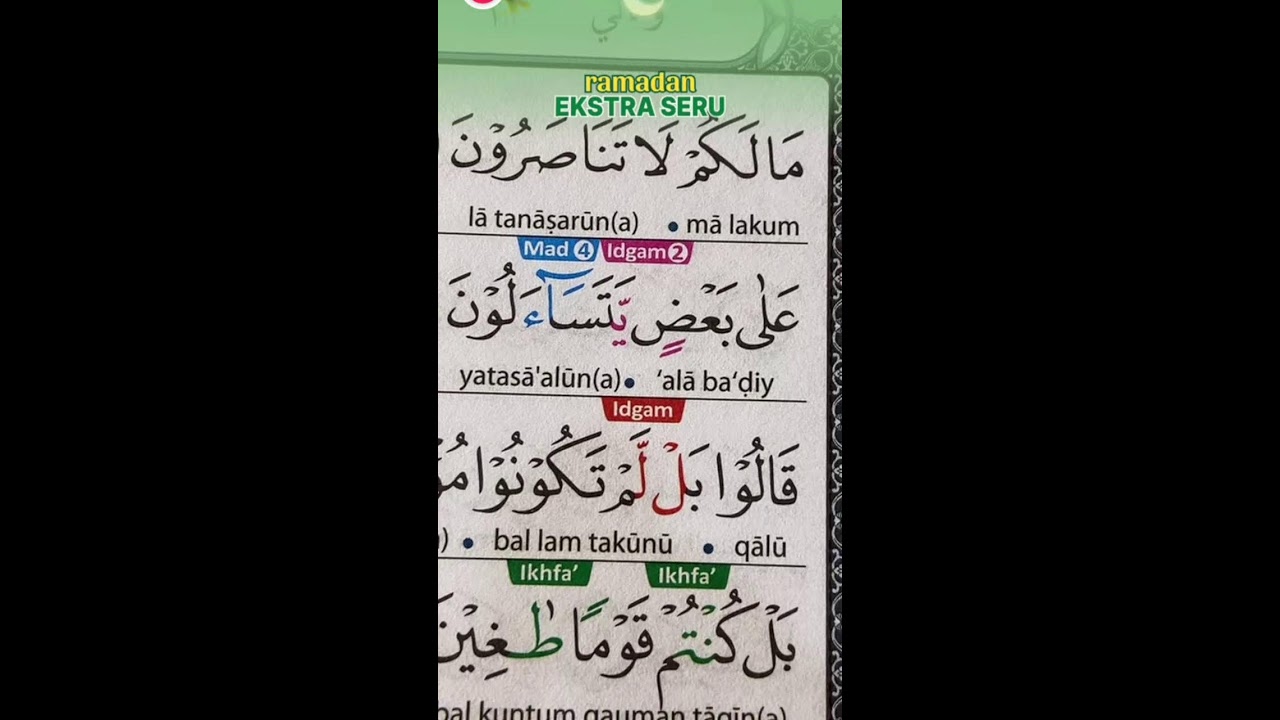 ramadan
EKSTRA SERU
مَا لَكُمْ لَا تَنَاصَرُوْنَ
lā tanāṣarūn(a) • mā lakum
Mad 4 Idgam 2
عَلٰى بَعْضٍ يَّتَسَاۤءَلُوْنَ
yatasā'alūn(a) • ‘alā ba‘ḍiy
Idgam
قَالُوْا بَلْ لَّمْ تَكُوْنُوْا
) • bal lam takūnū • qālū
Ikhfa’ Ikhfa’
بَلْ كُنْتُمْ قَوْمًا طٰغِيْنَ
bal kuntum qauman ṭāgīn(a)